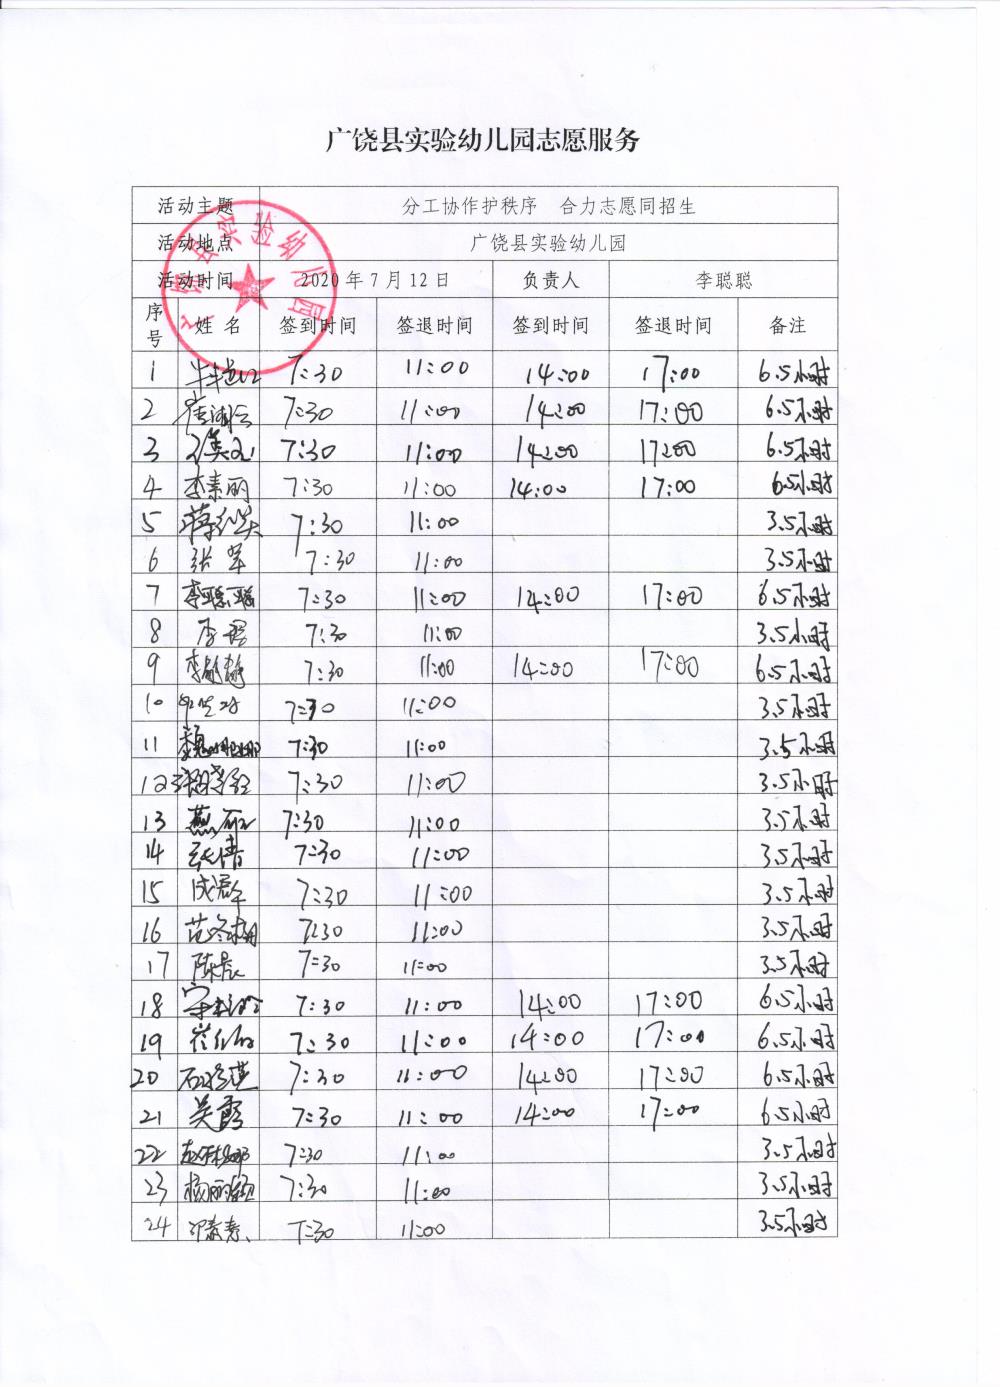 广饶县实验幼儿园志愿服务
活动主题 分工协作护秩序 合力志愿同招生
活动地点 广饶县实验幼儿园
活动时间 2020年7月12日 负责人 李聪聪
序号 姓 名 签到时间 签退时间 签到时间 签退时间 备注
1 7:30 11:00 14:00 17:00 6.5小时
2 7:30 11:00 14:00 17:00 6.5小时
3 7:30 11:00 14:00 17:00 6.5小时
4 李素丽 7:30 11:00 14:00 17:00 6.5小时
5 7:30 11:00 3.5小时
6 张军 7:30 11:00 3.5小时
7 李聪聪 7:30 11:00 14:00 17:00 6.5小时
8 7:30 11:00 3.5小时
9 7:30 11:00 14:00 17:00 6.5小时
10 7:30 11:00 3.5小时
11 7:30 11:00 3.5小时
12 7:30 11:00 3.5小时
13 7:30 11:00 3.5小时
14 张倩 7:30 11:00 3.5小时
15 成群 7:30 11:00 3.5小时
16 7:30 11:00 3.5小时
17 陈辰 7:30 11:00 3.5小时
18 7:30 11:00 14:00 17:00 6.5小时
19 7:30 11:00 14:00 17:00 6.5小时
20 7:30 11:00 14:00 17:00 6.5小时
21 吴霞 7:30 11:00 14:00 17:00 6.5小时
22 7:30 11:00 3.5小时
23 杨丽颖 7:30 11:00 3.5小时
24 7:30 11:00 3.5小时